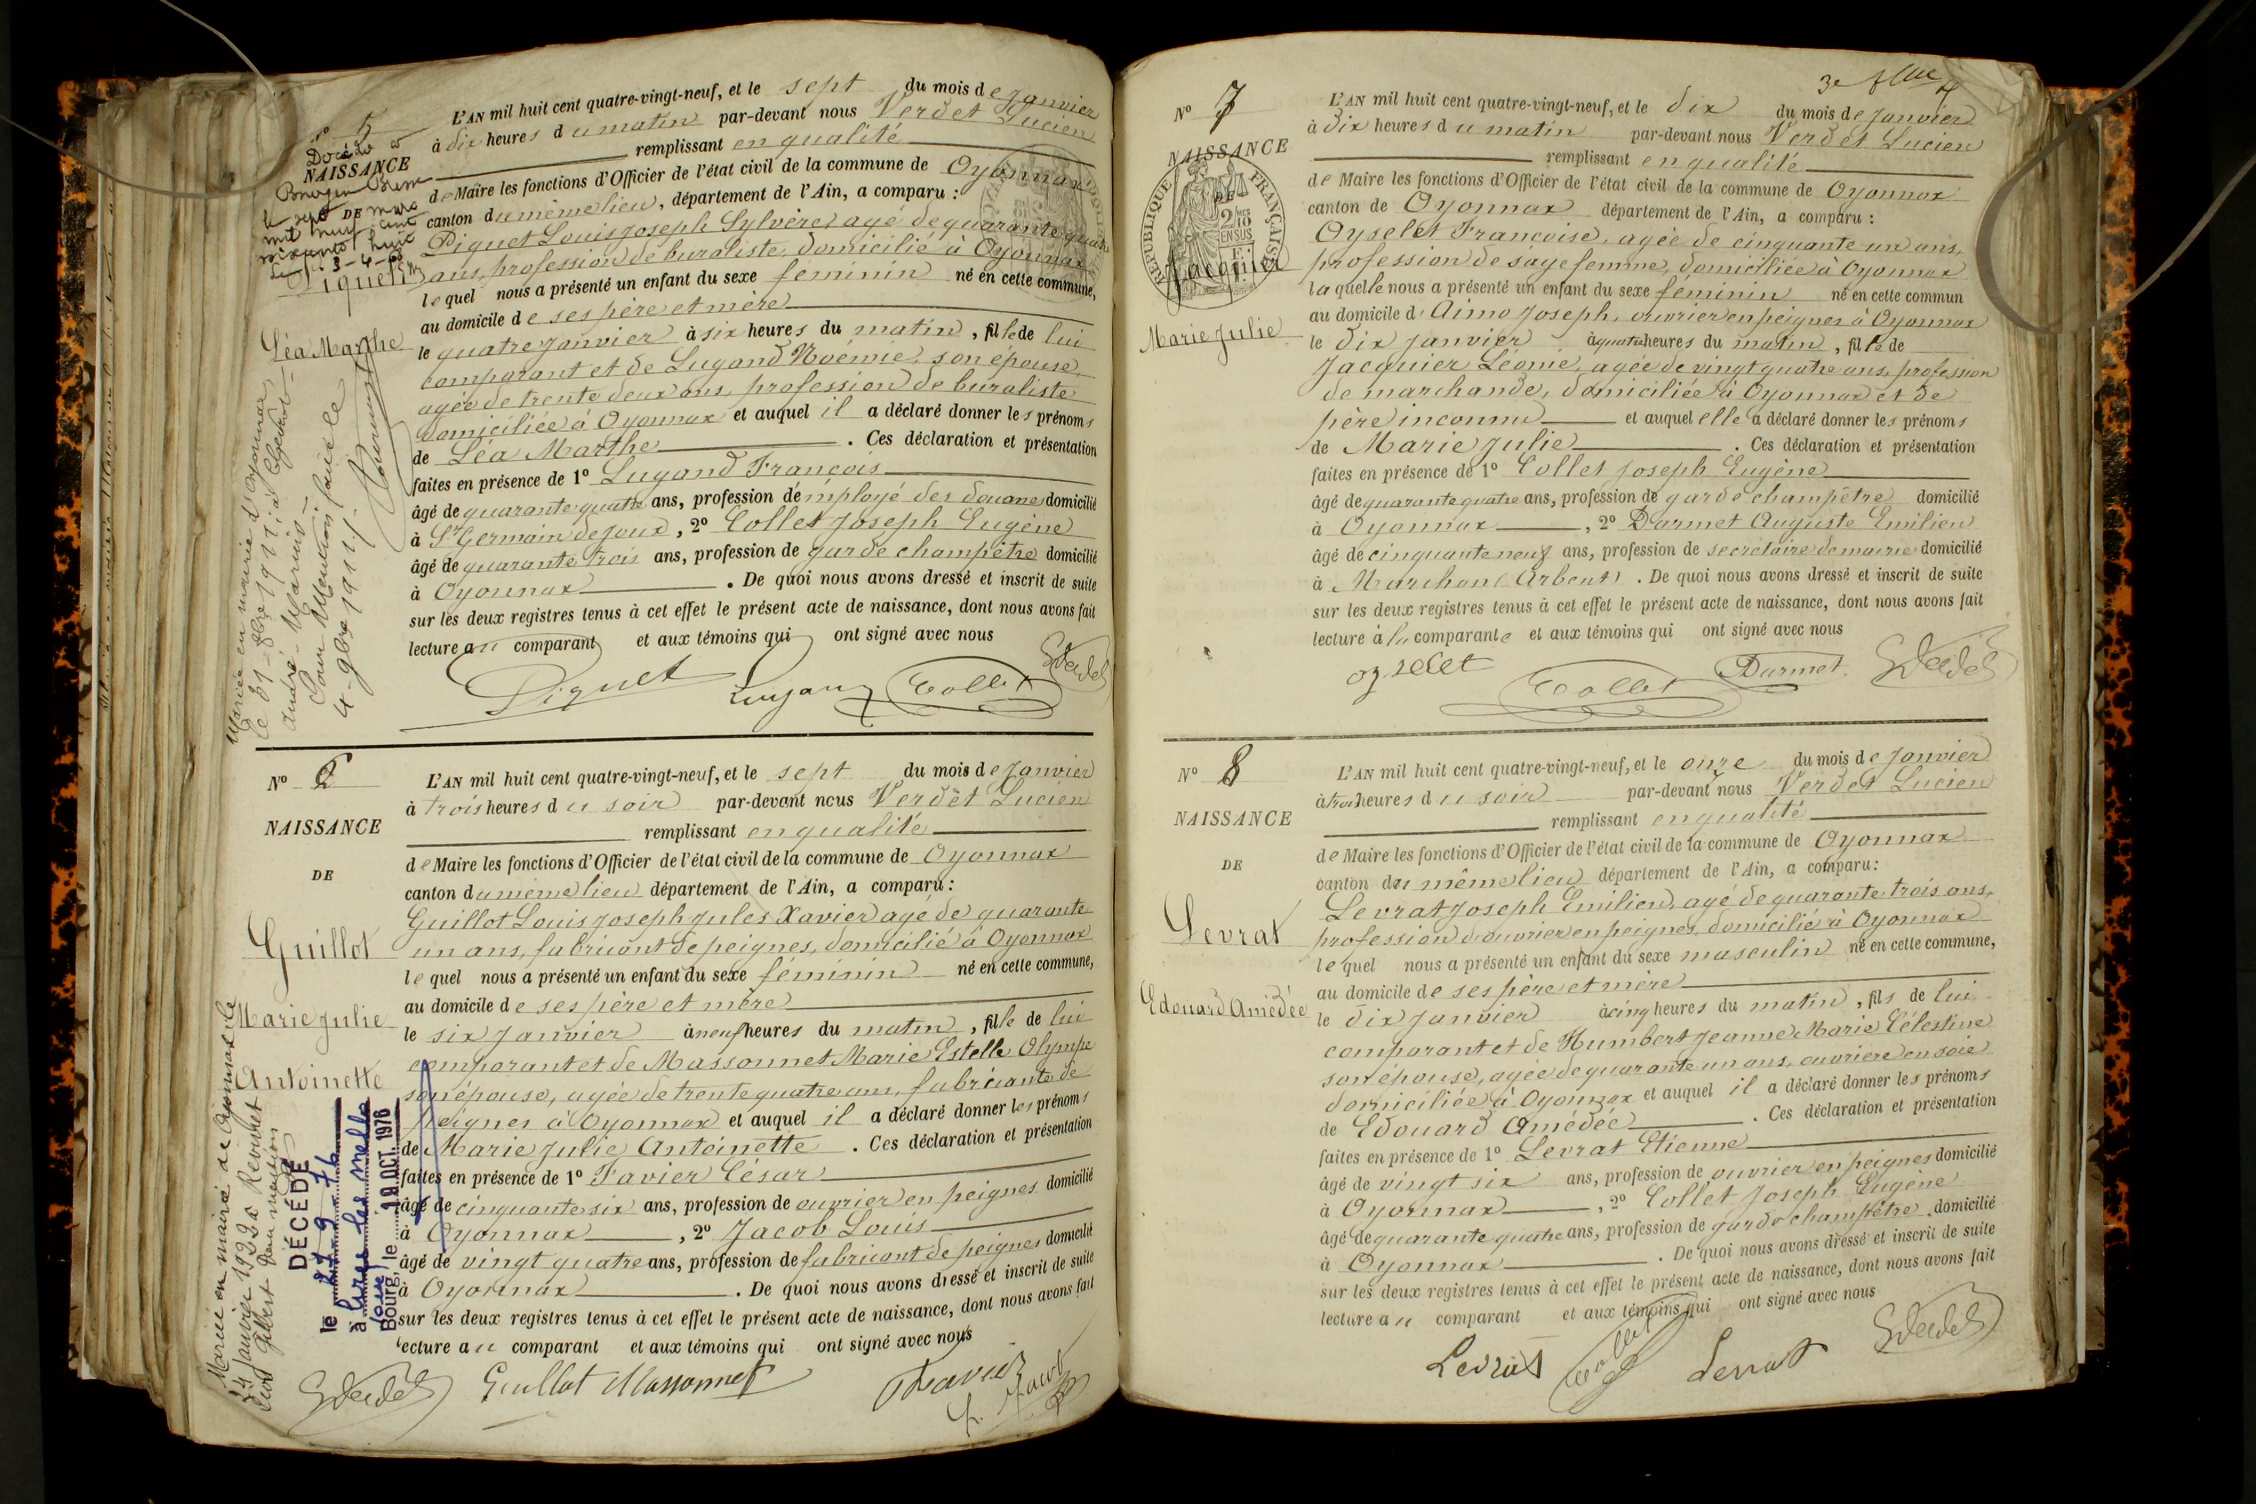 N° 5
Décédée à
NAISSANCE
le sept DE mars
mil neuf cent
soixante huit
Piquet
Léa Marthe
Mariée en mairie d'Oyonnax
le 31 - 8bre 1911, à
André - Marius -
Pour Mention faite le
4 - 9bre 1911 ./.
L'AN mil huit cent quatre-vingt-neuf, et le sept du mois de Janvier
à dix heures du matin par-devant nous Verdet Lucien
remplissant en qualité
de Maire les fonctions d'Officier de l'état civil de la commune de Oyonnax
canton du même lieu, département de l'Ain, a comparu :
Piquet Louis Joseph Sylvère, agé de quarante quatre
ans, profession de buraliste, domicilié à Oyonnax
lequel nous a présenté un enfant du sexe feminin né en cette commune,
au domicile de ses père et mère
le quatre Janvier à six heures du matin, fille de lui
comparant et de Lugand Noémie, son epouse,
agée de trente deux ans, profession de buraliste
domiciliée à Oyonnax et auquel il a déclaré donner les prénoms
de Léa Marthe. Ces déclaration et présentation
faites en présence de 1° Lugand François
âgé de quarante quatre ans, profession de employé des douanes domicilié
à St Germain de Joux, 2° Collet Joseph Eugène
âgé de quarante trois ans, profession de garde champêtre domicilié
à Oyonnax. De quoi nous avons dressé et inscrit de suite
sur les deux registres tenus à cet effet le présent acte de naissance, dont nous avons fait
lecture au comparant et aux témoins qui ont signé avec nous
Piquet Lugand Collet
N° 6
NAISSANCE
DE
Guillot
Marie Julie
Antoinette
Mariée en mairie de Oyonnax le
24 Janvier 1922 à
DÉCÉDÉ
le 27-9-76
à Lure
Bourg, le 19 OCT. 1976
L'AN mil huit cent quatre-vingt-neuf, et le sept du mois de Janvier
à trois heures du soir par-devant nous Verdet Lucien
remplissant en qualité
de Maire les fonctions d'Officier de l'état civil de la commune de Oyonnax
canton du même lieu département de l'Ain, a comparu :
Guillot Louis Joseph Jules Xavier agé de quarante
un ans, fabricant de peignes, domicilié à Oyonnax
lequel nous a présenté un enfant du sexe féminin né en cette commune,
au domicile de ses père et mère
le six Janvier à neuf heures du matin, fille de lui
comparant et de Massonnet Marie Estelle Olympe
son épouse, agée de trente quatre ans, fabricante de
peignes à Oyonnax et auquel il a déclaré donner les prénoms
de Marie Julie Antoinette. Ces déclaration et présentation
faites en présence de 1° Favier César
âgé de cinquante six ans, profession de ouvrier en peignes domicilié
à Oyonnax, 2° Jacob Louis
âgé de vingt quatre ans, profession de fabricant de peignes domicilié
à Oyonnax. De quoi nous avons dressé et inscrit de suite
sur les deux registres tenus à cet effet le présent acte de naissance, dont nous avons fait
lecture au comparant et aux témoins qui ont signé avec nous
Guillot Massonnet Favier
Jacob
N° 7
NAISSANCE
DE
RÉPUBLIQUE FRANÇAISE
Jacquier
Marie Julie
L'AN mil huit cent quatre-vingt-neuf, et le dix du mois de Janvier
à dix heures du matin par-devant nous Verdet Lucien
remplissant en qualité
de Maire les fonctions d'Officier de l'état civil de la commune de Oyonnax
canton de Oyonnax département de l'Ain, a comparu :
Oyselet Francoise, agée de cinquante un ans,
profession de sage femme, domiciliée à Oyonnax
laquelle nous a présenté un enfant du sexe feminin né en cette commun
au domicile d' Aimo Joseph, ouvrier en peignes à Oyonnax
le dix janvier à quatre heures du matin, fille de
Jacquier Léonie, agée de vingt quatre ans, profession
de marchande, domiciliée à Oyonnax et de
père inconnu et auquel elle a déclaré donner les prénoms
de Marie Julie. Ces déclaration et présentation
faites en présence de 1° Collet Joseph Eugène
âgé de quarante quatre ans, profession de garde champêtre domicilié
à Oyonnax, 2° Darmet Auguste Emilien
âgé de cinquante neuf ans, profession de secrétaire de mairie domicilié
à Marchon (Arbent). De quoi nous avons dressé et inscrit de suite
sur les deux registres tenus à cet effet le présent acte de naissance, dont nous avons fait
lecture à la comparante et aux témoins qui ont signé avec nous
oyselet Collet Darmet
N° 8
NAISSANCE
DE
Levrat
Edouard Amédée
L'AN mil huit cent quatre-vingt-neuf, et le onze du mois de Janvier
à trois heures du soir par-devant nous Verdet Lucien
remplissant en qualité
de Maire les fonctions d'Officier de l'état civil de la commune de Oyonnax
canton du même lieu département de l'Ain, a comparu :
Levrat Joseph Emilien, agé de quarante trois ans,
profession d'ouvrier en peignes, domicilié à Oyonnax
lequel nous a présenté un enfant du sexe masculin né en cette commune,
au domicile de ses père et mère
le dix Janvier à cinq heures du matin, fils de lui
comparant et de Humbert Jeanne Marie Célestine
son épouse, agée de quarante un ans, ouvriere en soie
domiciliée à Oyonnax et auquel il a déclaré donner les prénoms
de Edouard Amédée. Ces déclaration et présentation
faites en présence de 1° Levrat Etienne
âgé de vingt six ans, profession de ouvrier en peignes domicilié
à Oyonnax, 2° Collet Joseph Eugène
âgé de quarante quatre ans, profession de garde champêtre domicilié
à Oyonnax. De quoi nous avons dressé et inscrit de suite
sur les deux registres tenus à cet effet le présent acte de naissance, dont nous avons fait
lecture au comparant et aux témoins qui ont signé avec nous
Levrat Collet Levrat